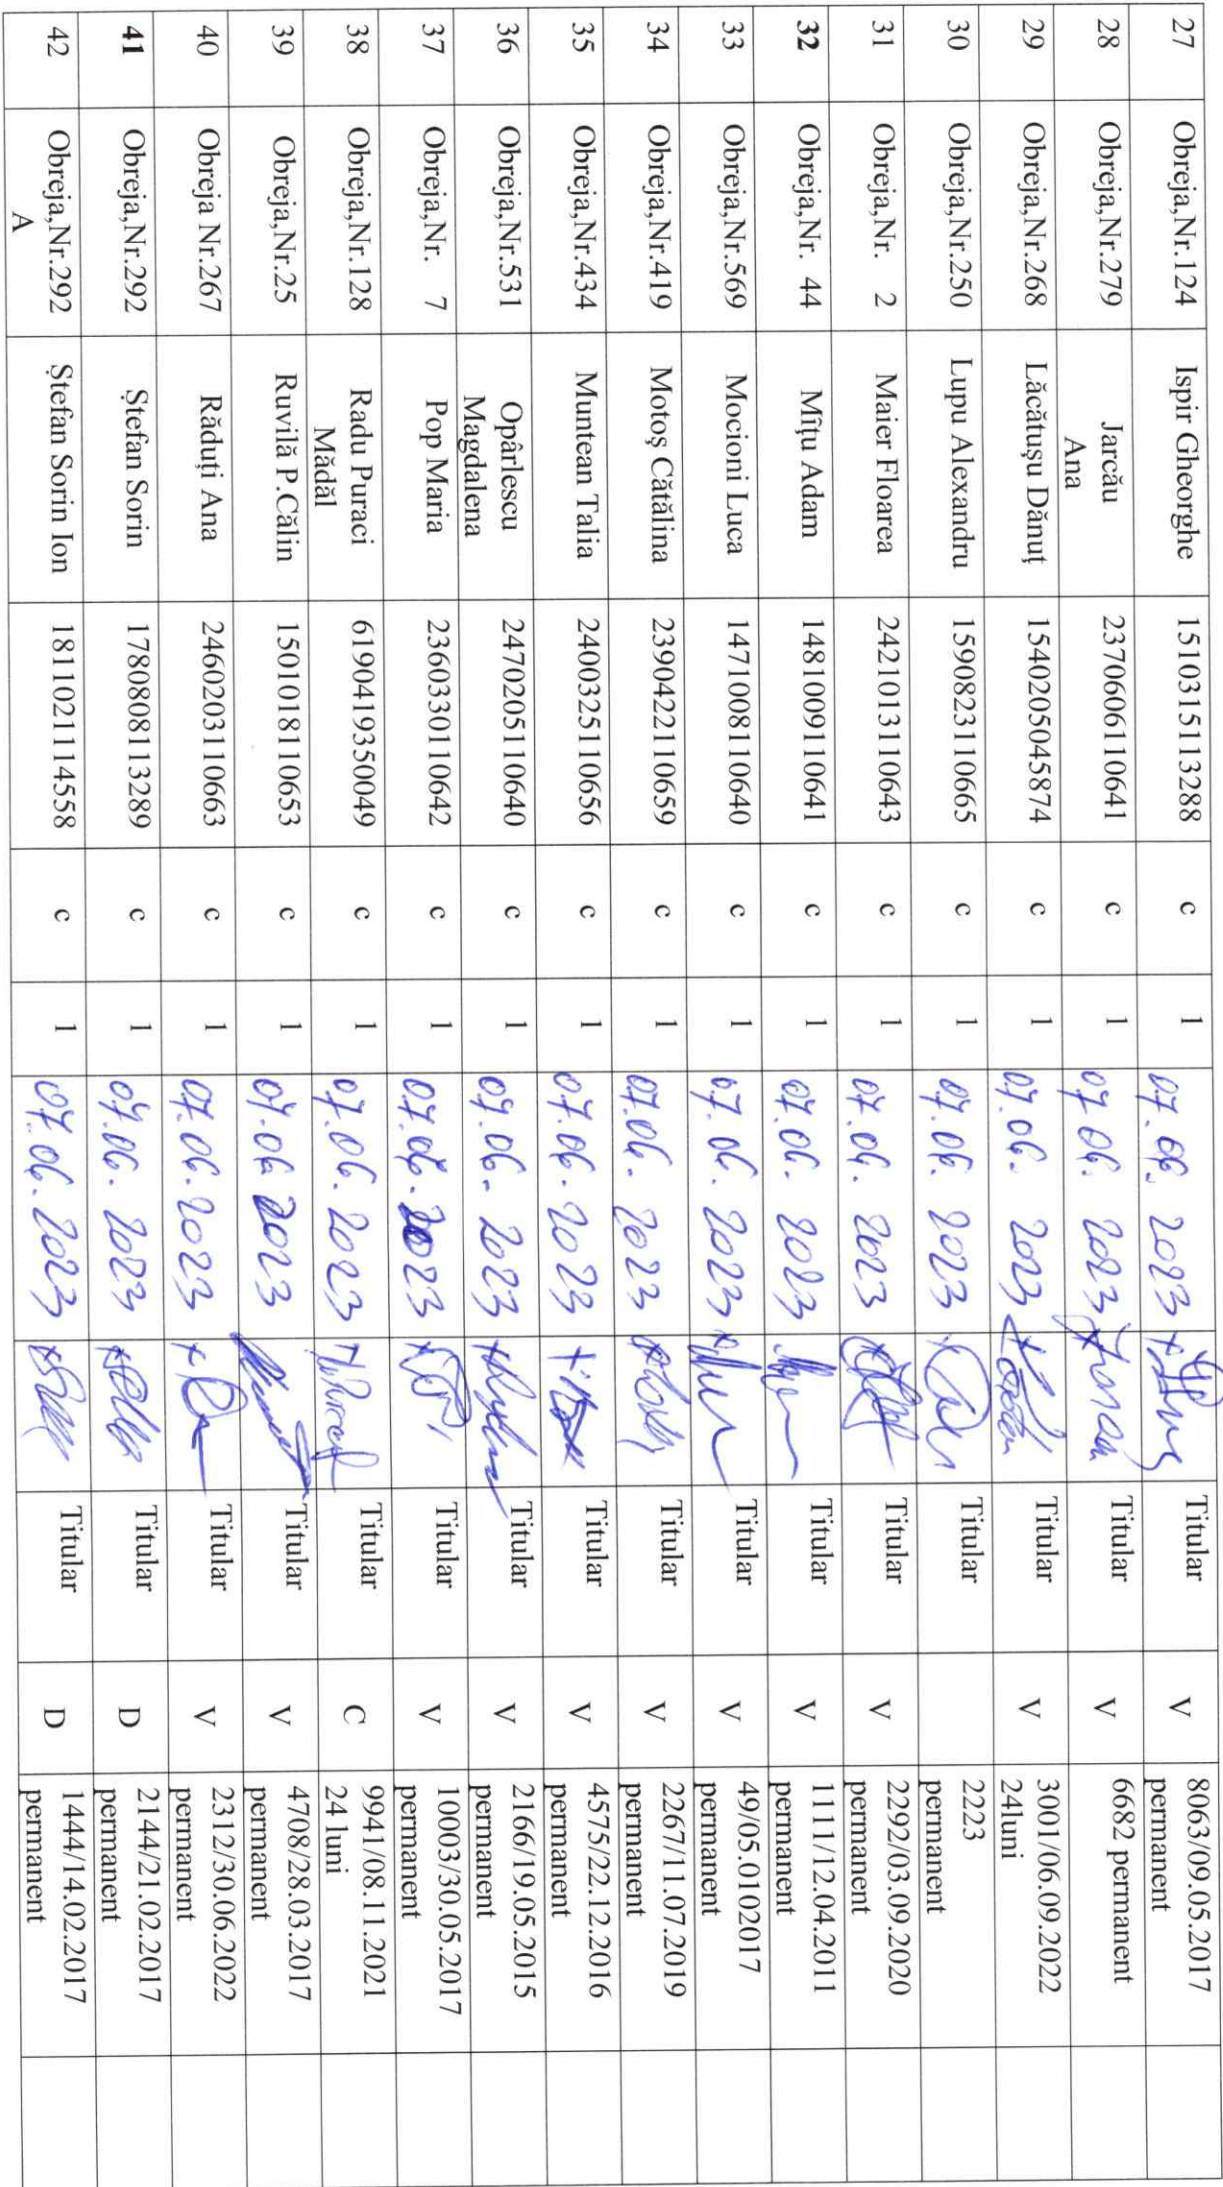 27 Obreja,Nr.124 Ispir Gheorghe 1510315113288 c 1 07.06.2023 Titular V 8063/09.05.2017
permanent
28 Obreja,Nr.279 Jarcău 2370606110641 c 1 07.06.2023 Titular V 6682 permanent
Ana
29 Obreja,Nr.268 Lăcătușu Dănuț 1540205045874 c 1 07.06.2023 Titular V 3001/06.09.2022
24luni
30 Obreja,Nr.250 Lupu Alexandru 1590823110665 c 1 07.06.2023 Titular 2223
permanent
31 Obreja,Nr. 2 Maier Floarea 2421013110643 c 1 07.06.2023 Titular V 2292/03.09.2020
permanent
32 Obreja,Nr. 44 Mîțu Adam 1481009110641 c 1 07.06.2023 Titular V 1111/12.04.2011
permanent
33 Obreja,Nr.569 Mocioni Luca 1471008110640 c 1 07.06.2023 Titular V 49/05.012017
permanent
34 Obreja,Nr.419 Motoș Cătălina 2390422110659 c 1 07.06.2023 Titular V 2267/11.07.2019
permanent
35 Obreja,Nr.434 Muntean Talia 2400325110656 c 1 07.06.2023 Titular V 4575/22.12.2016
permanent
36 Obreja,Nr.531 Opârlescu 2470205110640 c 1 07.06.2023 Titular V 2166/19.05.2015
Magdalena permanent
37 Obreja,Nr. 7 Pop Maria 2360330110642 c 1 07.06.2023 Titular V 10003/30.05.2017
permanent
38 Obreja,Nr.128 Radu Puraci 6190419350049 c 1 07.06.2023 Titular C 9941/08.11.2021
Mădăl 24 luni
39 Obreja,Nr.25 Ruvilă P.Călin 1501018110653 c 1 07.06.2023 Titular V 4708/28.03.2017
permanent
40 Obreja Nr.267 Răduți Ana 2460203110663 c 1 07.06.2023 Titular V 2312/30.06.2022
permanent
41 Obreja,Nr.292 Ștefan Sorin 1780808113289 c 1 07.06.2023 Titular D 2144/21.02.2017
permanent
42 Obreja,Nr.292 Ștefan Sorin Ion 1811021114558 c 1 07.06.2023 Titular D 1444/14.02.2017
A permanent